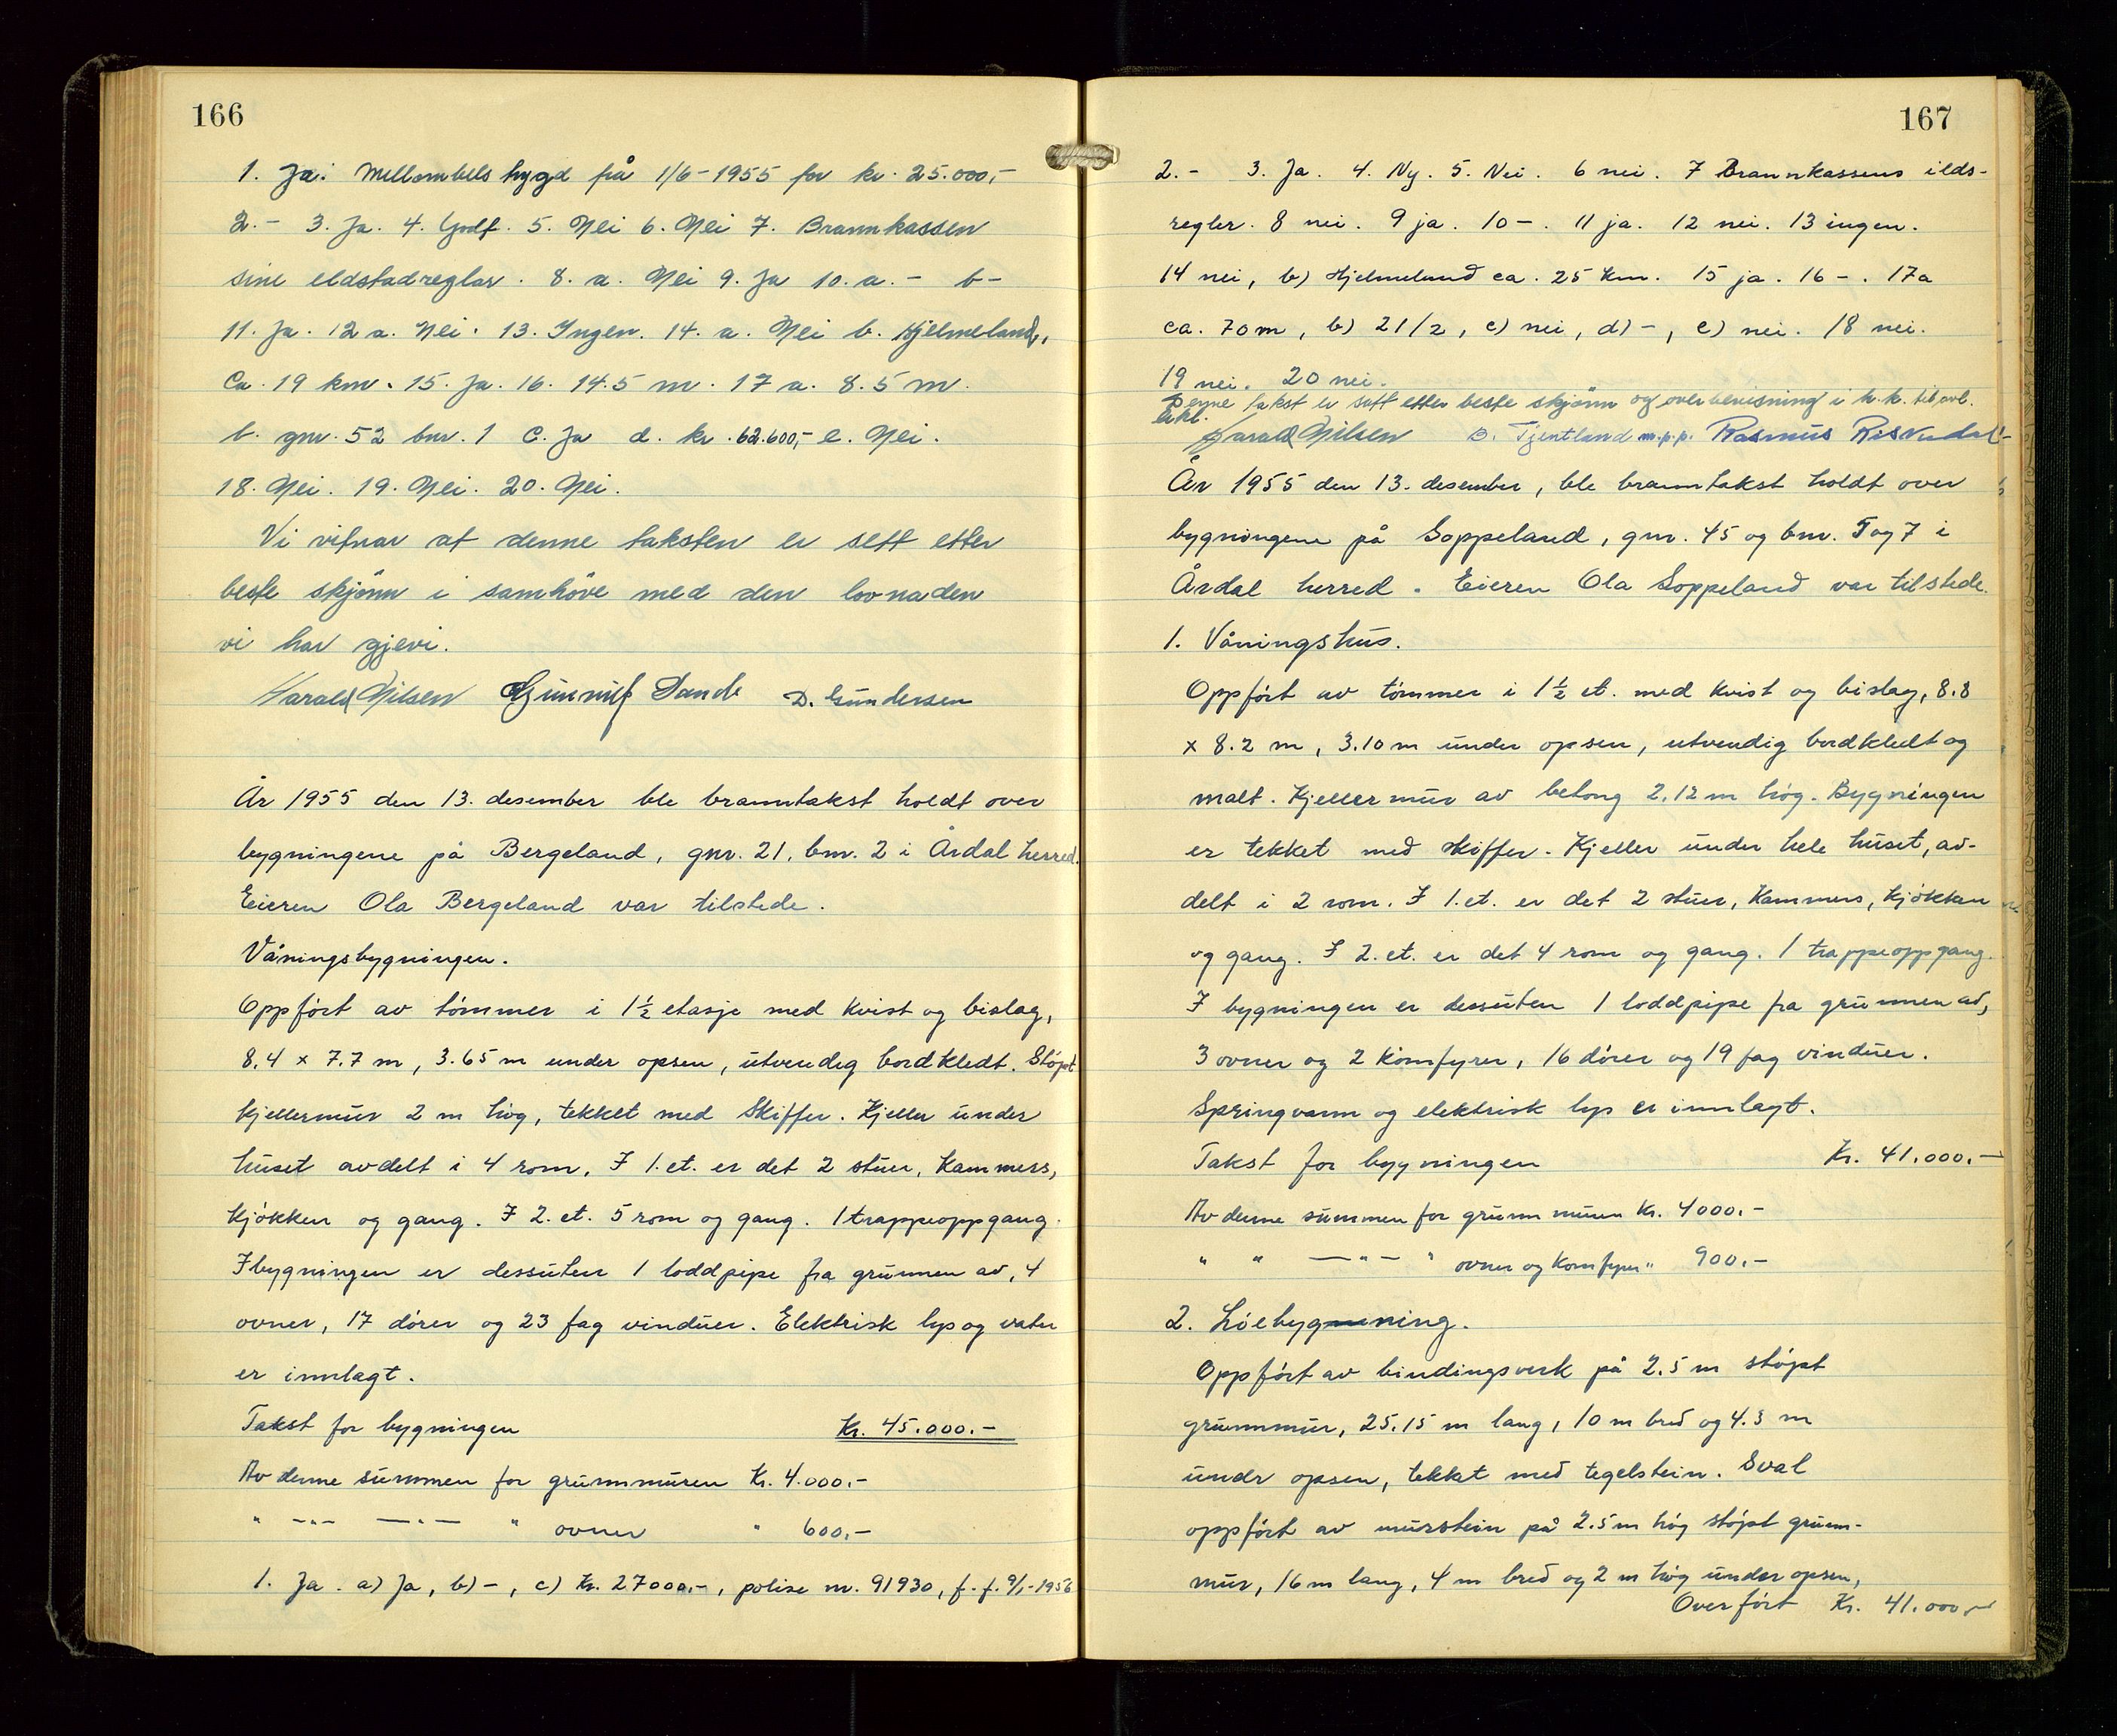 166
1. Ja. Mellombels trygd frå 1/6-1955 for kr. 25.000,-
2.- 3. Ja. 4. Godt. 5. Nei 6. Nei 7. Brannkassen
sine eldstadreglar. 8. a. Nei 9. Ja 10. a. - b -
11. Ja. 12 a. Nei. 13. Ingen. 14. a. Nei b. Hjelmeland,
Ca. 19 km. 15. Ja. 16. 14.5 m. 17 a. 8.5 m.
b. gnr. 52 bnr. 1 c. Ja d. kr. 62.600,- e. Nei.
18. Nei. 19. Nei. 20. Nei.
Vi vitnar at denne taksten er sett etter
beste skjönn i samhöve med den lovnaden
vi har gjevi.
Harald Nilsen Gunnulf Sande D. Gundersen
År 1955 den 13. desember ble branntakst holdt over
bygningene på Bergeland, gnr. 21, bnr. 2 i Årdal herred.
Eieren Ola Bergeland var tilstede.
Våningsbygningen.
Oppfört av tömmer i 1½ etasje med kvist og bislag,
8.4 x 7.7 m, 3.65 m under opsen, utvendig bordkledt. Stöpt
kjellermur 2 m hög, tekket med Skiffer. Kjeller under
huset avdelt i 4 rom. I 1. et. er det 2 stuer, Kammers,
kjökken og gang. I 2. et. 5 rom og gang. 1 trappeoppgang.
I bygningen er dessuten 1 loddpipe fra grunnen av, 4
ovner, 17 dörer og 23 fag vinduer. Elektrisk lys og vatn
er innlagt.
Takst for bygningen Kr. 45.000.-
Av denne summen for grunnmuren Kr. 4.000.-
" -"- -"- " ovner " 600.-
1. Ja. a) Ja, b) -, c) Kr. 27000.-, polise nr. 91930, f. f. 9/1-1956
167
2.- 3. Ja. 4. Ny. 5. Nei. 6 nei. 7 Brannkassens ilds-
regler. 8 nei. 9 ja. 10 -. 11 ja. 12 nei. 13 ingen.
14 nei, b) Hjelmeland ca. 25 km. 15 ja. 16 -. 17a
ca. 70 m, b) 21/2, c) nei, d) -, e) nei. 18 nei.
19 nei. 20 nei.
Denne takst er satt etter beste skjönn og overbevisning i h.h. til avl.
erkl.
Harald Nilsen D. Tjentland m.p.p. Rasmus Riskedal
År 1955 den 13. desember, ble branntakst holdt over
bygningene på Soppeland, gnr. 45 og bnr. 5 og 7 i
Årdal herred. Eieren Ola Soppeland var tilstede.
1. Våningshus.
Oppfört av tömmer i 1½ et. med kvist og bislag, 8.8
x 8.2 m, 3.10 m under opsen, utvendig bordkledt og
malt. Kjellermur av betong 2,12 m hög. Bygningen
er tekket med skiffer. Kjeller under hele huset, av-
delt i 2 rom. I 1. et. er det 2 stuer, Kammers, kjökken
og gang. I 2. et. er det 4 rom og gang. 1 trappeoppgang.
I bygningen er dessuten 1 loddpipe fra grunnen av,
3 ovner og 2 komfyrer, 16 dörer og 19 fag vinduer.
Springvann og elektrisk lys er innlagt.
Takst for bygningen Kr. 41.000.-
Av denne summen for grunnmuren Kr. 4000.-
" " -"- " ovner og Komfyrer " 900.-
2. Löebygning.
Oppfört av bindingsverk på 2.5 m stöpt
grunnmur, 25.15 m lang, 10 m bred og 4.3 m
undr opsen, tekket med tegelstein. Sval
oppfört av murstein på 2.5 m hög stöpt grunn-
mur, 16 m lang, 4 m bred og 2 m hög under opsen,
Overfört Kr. 41.000,-